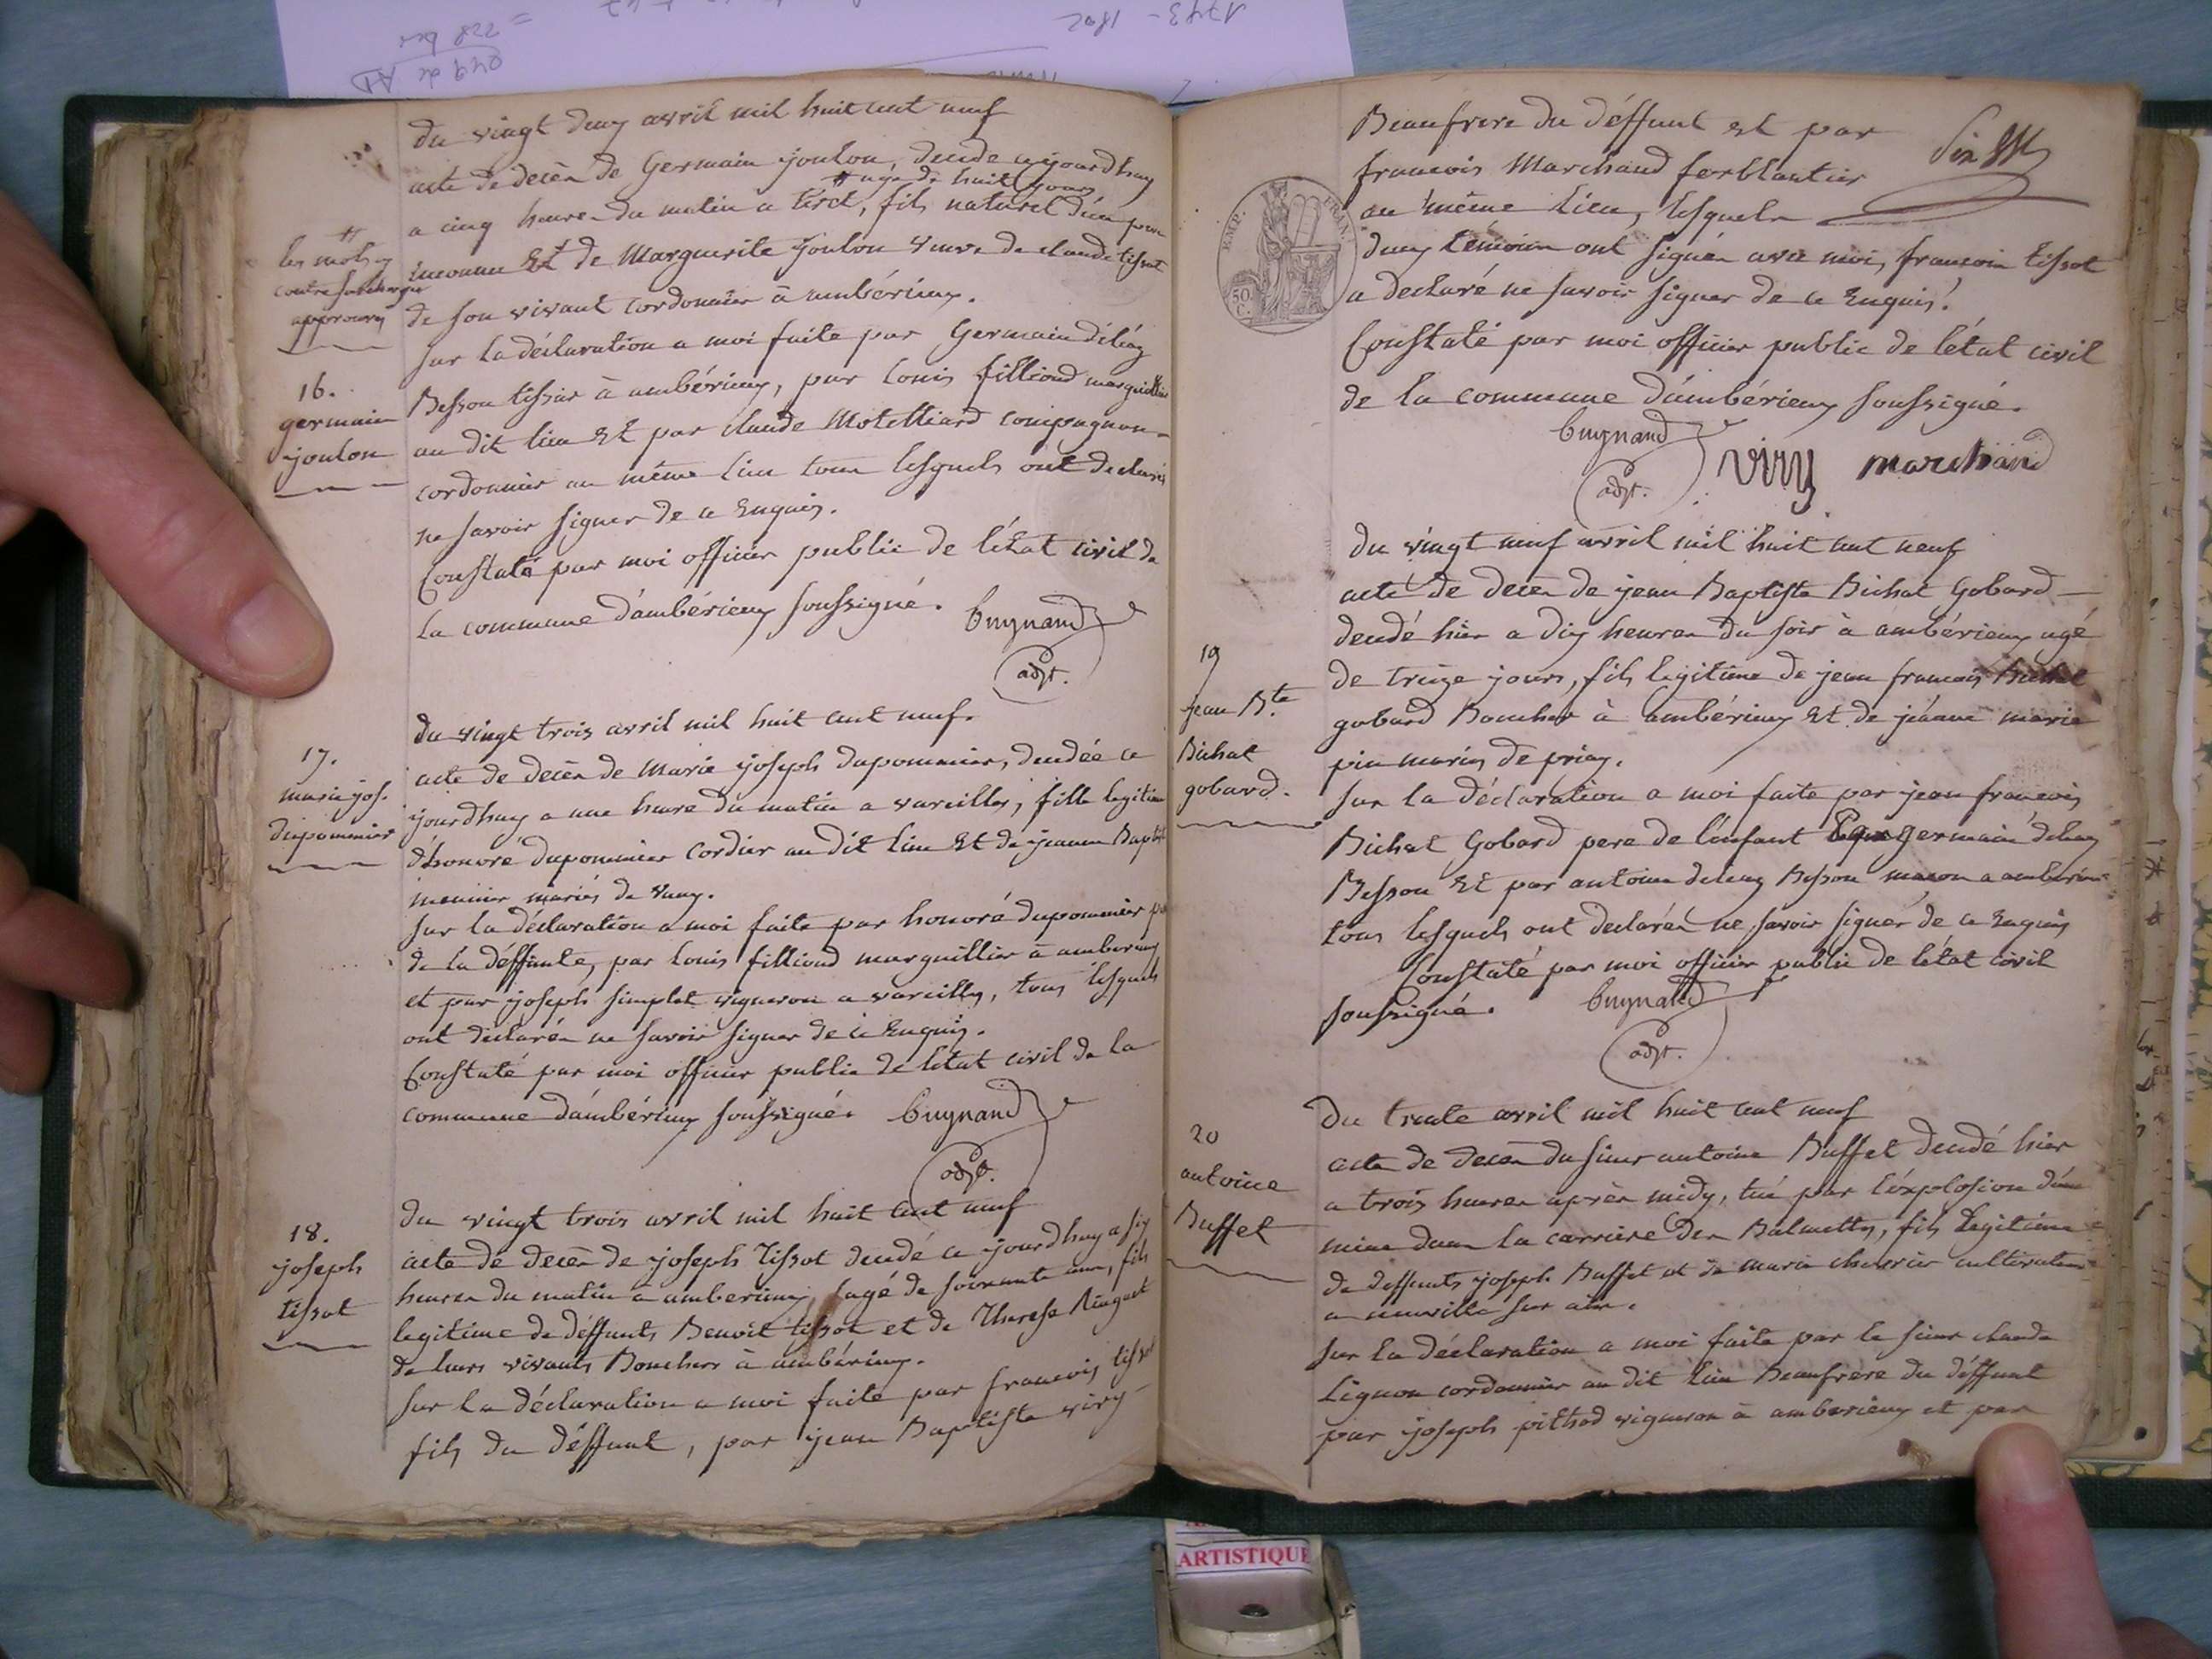 1793 - 1802
= 228 bis
249 du AD
du vingt deux avril mil huit cent neuf
acte de decès de Germain joulon, decede ajourdhuy
# agé de huit jours
a cinq heures du matin a tiret, fils naturel d'un pere
inconnu Et de Marguerite joulon veuve de claude tissot
de son vivant cordonnier à ambérieux.
sur la déclaration a moi faite par Germain déléaz
Besson tissier à ambérieux, par Louis filliond marguillier
au dit lieu Et par claude Motelliard compagnon
cordonnier au même lieu tous lesquels ont declarés
ne savoir signer de ce Enquis.
Constaté par moi officier public de l'état civil de
la commune d'ambérieux soussigné. Guynand
adjt.
#
les mots
contre surchargés
approuvés
16.
germain
joulon
du vingt trois avril mil huit cent neuf.
acte de decès de Marie joseph dupommier, decedée ce
jourdhuy a une heure du matin a vareilles, fille legitime
d'honoré dupommier cordier au dit lieu Et de jeanne Baptiste
meunier mariés de
sur la déclaration a moi faite par honoré dupommier
de la déffunte, par Louis filliond marguillier à amberieux
et par joseph simplet vigneron a vareilles, tous lesquels
ont declarés ne savoir signer de ce Enquis.
Constaté par moi officier public de l'état civil de la
commune d'ambérieux soussigné. Guynand
adjt.
17.
marie jos.
dupommier
du vingt trois avril mil huit cent neuf
acte de decès de joseph Tissot decedé ce jourdhuy a six
heures du matin a amberieux, agé de soixante ans, fils
legitime de déffunts Benoit tissot et de Therese
de leurs vivants Bouchers à ambérieux.
sur la déclaration a moi faite par francois tissot
fils du déffunt, par jean Baptiste viry
18.
joseph
tissot
Beaufrere du déffunt et par
francois Marchand ferblantier
au même lieu, lesquels
deux temoins ont signés avec moi, francois tissot
a declaré ne savoir signer de ce Enquis.
Constaté par moi officier public de l'état civil
de la commune d'ambérieux soussigné.
Guynand viry marchand
adjt.
EMP. FRAN.
50 C.
du vingt neuf avril mil huit cent neuf
acte de decès de jean Baptiste Bichat Gobard
decedé hier a dix heures du soir à ambérieux agé
de treize jours, fils legitime de jean francois Bichat
gobard Boucher à ambérieux Et de jéanne marie
pin mariés de priay.
sur la déclaration a moi faite par jean francois
Bichat Gobard pere de l'enfant par germain deleaz
Besson Et par antoine deleaz Besson macon a amberieux
tous lesquels ont declarés ne savoir signer de ce Enquis
Constaté par moi officier public de l'état civil
soussigné. Guynand
adjt.
19
jean Bte.
Bichat
gobard.
du trente avril mil huit cent neuf
acte de decès du sieur antoine Buffet decedé hier
a trois heures après midy, tué par l'éxplosion d'une
mine dans la carriere des Balmettes, fils Legitime
de deffunts joseph Buffet et de marie cultivateurs
a neuville sur ain.
sur la déclaration a moi faite par le sieur claude
Lignon cordonnier au dit lieu Beaufrere du déffunt
par joseph pithod vigneron à amberieux et par
20
antoine
Buffet
ARTISTIQUE